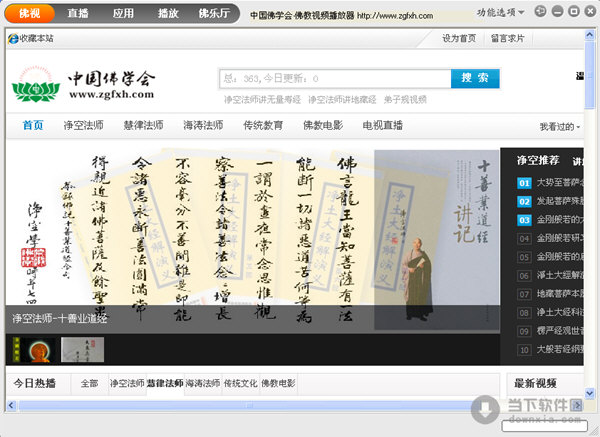 佛视 直播 应用 播放 佛乐厅 中国佛学会 佛教视频播放器 http://www.zgfxh.com 功能选项
收藏本站 设为首页 留言求片
中国佛学会
www.zgfxh.com
总: 363,今日更新: 0 搜 索
净空法师讲无量寿经 净空法师讲地藏经 弟子规视频
首页 净空法师 慧律法师 海涛法师 传统教育 佛教电影 电视直播 我看过的
佛言龍王當知菩薩有一法
能斷一切諸惡道苦何等為
一謂於晝夜常念思惟觀
察善法令諸善法念念增長
不容毫分不善間雜是即能
令諸惡永斷善法圓滿常
得親近諸佛菩薩及餘聖眾
净空
十善業道經
讲记
净土大经解演义
净空法师-十善业道经
净空推荐
01 大势至菩萨念
02 发起菩萨殊胜
03 金刚般若的大
04 金刚般若研习
05 金刚般若的
06 净土大经解演
07 地藏菩萨本愿
08 净土大经科注
09 楞严经观世音
10 大般若经纲要
今日热播 全部 净空法师 慧律法师 海涛法师 传统文化 佛教电影 最新视频
当下软件园
downxia.com